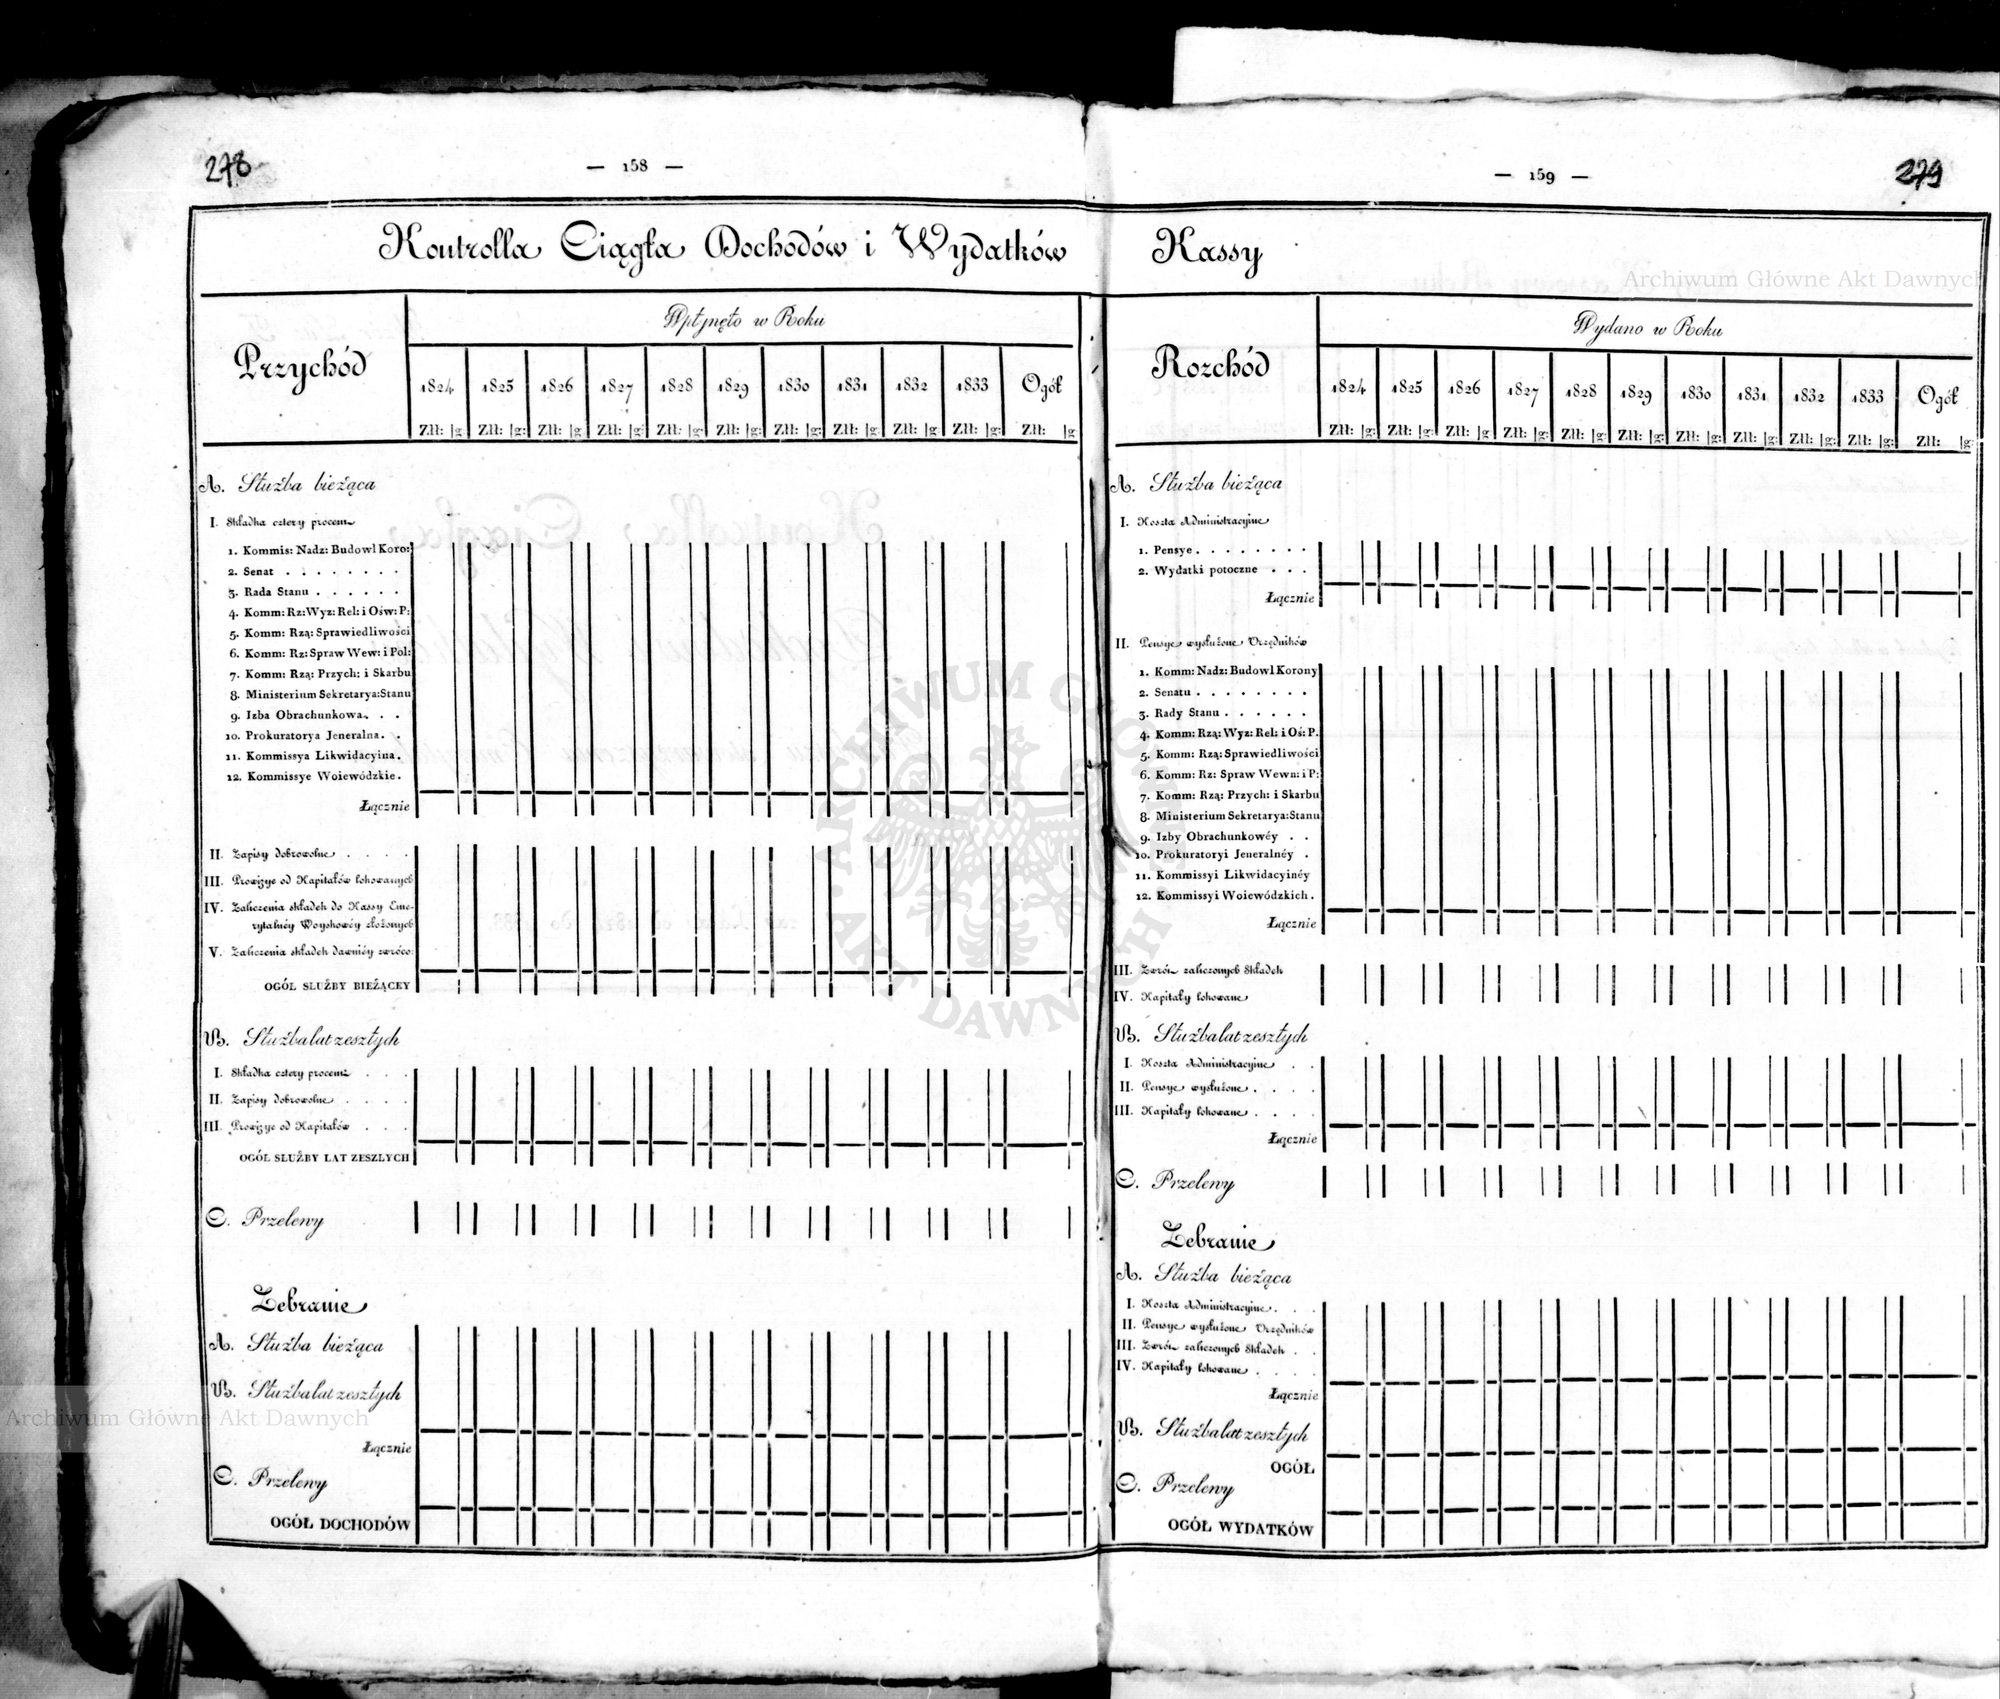 278
— 158 —
Kontrolla Ciągła Dochodów i Wydatków
Przychód
Wpłynęło w Roku
1824 1825 1826 1827 1828 1829 1830 1831 1832 1833 Ogół
Złł: g: Złł: g: Złł: g: Złł: g: Złł: g: Złł: g: Złł: g: Złł: g: Złł: g: Złł: g: Złł: g:
A. Służba bieżąca
I. Składka cztery procent
1. Kommis: Nadz: Budowl Koro:
2. Senat . . . . . . . .
3. Rada Stanu . . . . . .
4. Komm: Rz: Wyz: Rel: i Ośw: P:
5. Komm: Rzą: Sprawiedliwości
6. Komm: Rz: Spraw Wew: i Pol:
7. Komm: Rzą: Przych: i Skarbu
8. Ministerium Sekretarya: Stanu
9. Izba Obrachunkowa . . .
10. Prokuratorya Jeneralna . .
11. Kommissya Likwidacyina .
12. Kommissye Woiewódzkie .
Łącznie
II. Zapisy dobrowolne . . . .
III. Prowizye od Kapitałów lokowanych
IV. Zaliczenia składek do Kassy Eme-
rytalnéy Woyskowéy złożonych
V. Zaliczenia składek dawniéy zwróco:
OGÓŁ SŁUŻBY BIEŻĄCEY
B. Służba lat zeszłych
I. Składka cztery procent . . .
II. Zapisy dobrowolne . . . .
III. Prowizye od Kapitałów . . .
OGÓŁ SŁUŻBY LAT ZESZŁYCH
C. Przelewy
Zebranie
A. Służba bieżąca
B. Służba lat zeszłych
Łącznie
C. Przelewy
OGÓŁ DOCHODÓW
279
— 159 —
Kassy
Rozchód
Wydano w Roku
1824 1825 1826 1827 1828 1829 1830 1831 1832 1833 Ogół
Złł: g: Złł: g: Złł: g Złł: g: Złł: g: Złł: g: Złł: g: Złł: g: Złł: g: Złł: g: Złł: g:
A. Służba bieżąca
I. Koszta Administracyine
1. Pensye . . . . . . . .
2. Wydatki potoczne . . .
Łącznie
II. Pensye wysłużone Urzędników
1. Komm: Nadz: Budowl Korony
2. Senatu . . . . . . . .
3. Rady Stanu . . . . . .
4. Komm: Rzą: Wyz: Rel: i Oś: P.
5. Komm: Rzą: Sprawiedliwości
6. Komm: Rz: Spraw Wewn: i P:
7. Komm: Rzą: Przych: i Skarbu
8. Ministerium Sekretarya: Stanu
9. Izby Obrachunkowéy . .
10. Prokuratoryi Jeneralnéy .
11. Kommissyi Likwidacyinéy
12. Kommissyi Woiewódzkich .
Łącznie
III. Zwrót zaliczonych Składek
IV. Kapitały lokowane
B. Służba lat zeszłych
I. Koszta Administracyine . .
II. Pensye wysłużone . . . .
III. Kapitały lokowane . . . .
Łącznie
C. Przelewy
Zebranie
A. Służba bieżąca
I. Koszta Administracyine . . .
II. Pensye wysłużone Urzędników
III. Zwrót zaliczonych Składek . .
IV. Kapitały lokowane . . . .
Łącznie
B. Służba lat zeszłych
OGÓŁ
C. Przelewy
OGÓŁ WYDATKÓW
Archiwum Główne Akt Dawnych
Archiwum Główne Akt Dawnych
ARCHIWUM GŁÓWNE · AKT DAWNYCH ·